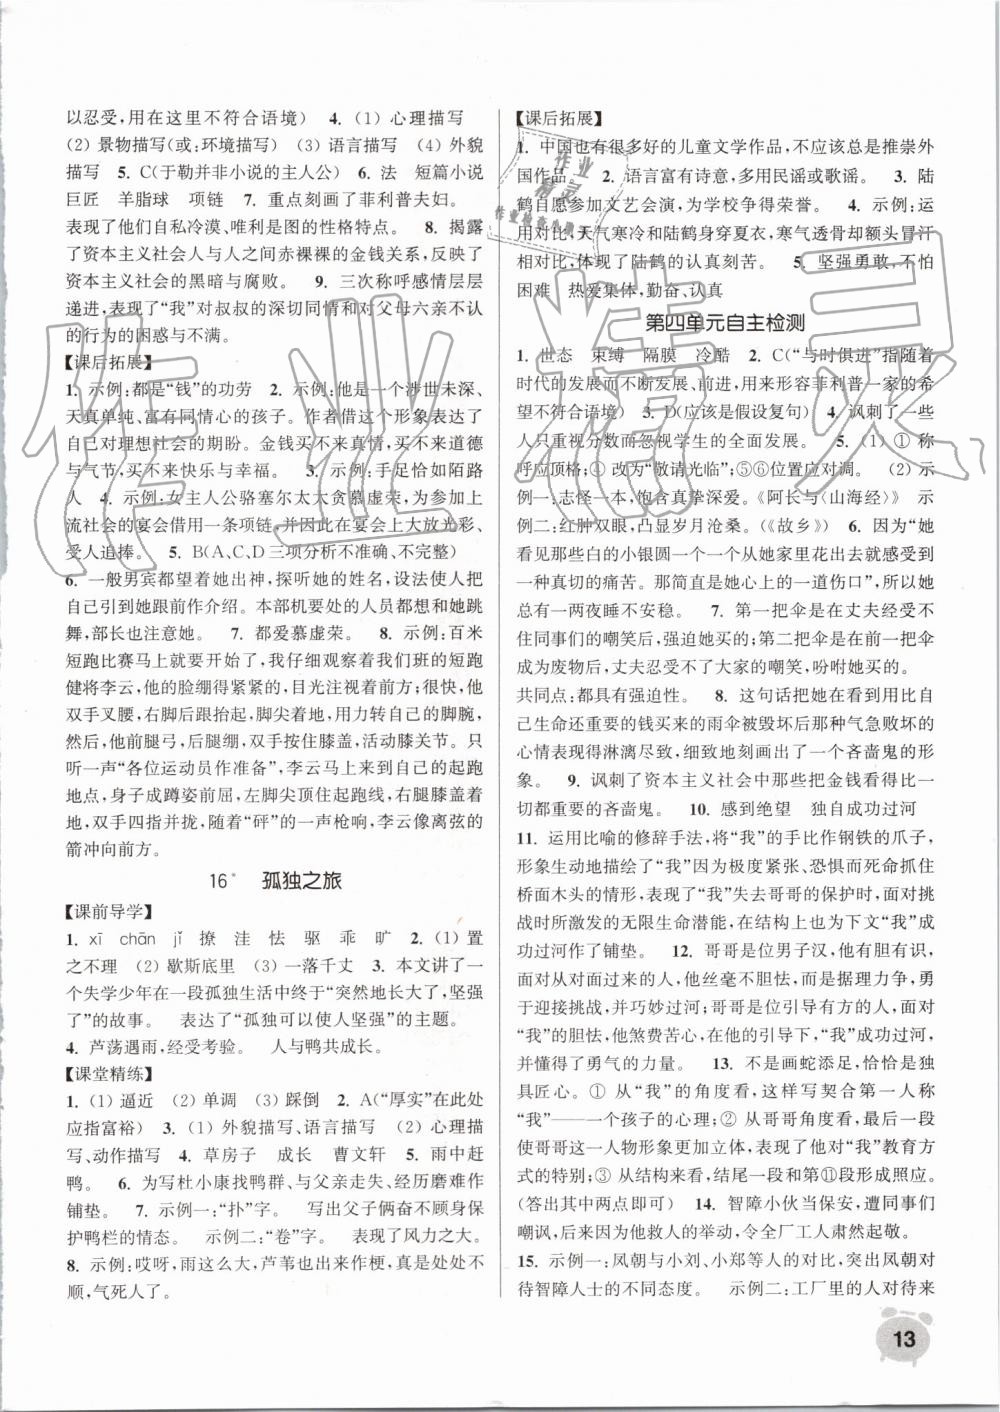 以忍受,用在这里不符合语境) 4. (1) 心理描写
(2) 景物描写(或:环境描写) (3) 语言描写 (4) 外貌
描写 5. C(于勒并非小说的主人公) 6. 法 短篇小说
巨匠 羊脂球 项链 7. 重点刻画了菲利普夫妇。
表现了他们自私冷漠、唯利是图的性格特点。 8. 揭露
了资本主义社会人与人之间赤裸裸的金钱关系,反映了
资本主义社会的黑暗与腐败。 9. 三次称呼感情层层
递进,表现了“我”对叔叔的深切同情和对父母六亲不认
的行为的困惑与不满。
【课后拓展】
1. 示例:都是“钱”的功劳 2. 示例:他是一个涉世未深、
天真单纯、富有同情心的孩子。作者借这个形象表达了
自己对理想社会的期盼。金钱买不来真情,买不来道德
与气节,买不来快乐与幸福。 3. 示例:手足恰如陌路
人 4. 示例:女主人公骆塞尔太太贪慕虚荣,为参加上
流社会的宴会借用一条项链,并因此在宴会上大放光彩、
受人追捧。 5. B(A、C、D三项分析不准确、不完整)
6. 一般男宾都望着她出神,探听她的姓名,设法使人把
自己引到她跟前作介绍。本部机要处的人员都想和她跳
舞,部长也注意她。 7. 都爱慕虚荣。 8. 示例:百米
短跑比赛马上就要开始了,我仔细观察着我们班的短跑
健将李云,他的脸绷得紧紧的,目光注视着前方;很快,他
双手叉腰,右脚后跟抬起,脚尖着地,用力转动他的脚腕,
然后,他前腿弓,后腿绷,双手按住膝盖,活动膝关节。只
听一声“各位运动员作准备”,李云马上来到自己的起跑
地点,身子成蹲姿前屈,左脚尖顶住起跑线,右腿膝盖着
地,双手四指并拢,随着“砰”的一声枪响,李云像离弦的
箭冲向前方。
16* 孤独之旅
【课前导学】
1. xī chān jǐ 撩 洼 怯 驱 乖 旷 2. (1) 置
之不理 (2) 歇斯底里 (3) 一落千丈 3. 本文讲了一
个失学少年在一段孤独生活中终于“突然地长大了,坚强
了”的故事。 表达了“孤独可以使人坚强”的主题。
4. 芦荡遇雨,经受考验。 人与鸭共成长。
【课堂精练】
1. (1) 逼近 (2) 单调 (3) 踩倒 2. A(“厚实”在此处
应指富裕) 3. (1) 外貌描写、语言描写 (2) 心理描
写、动作描写 4. 草房子 成长 曹文轩 5. 雨中赶
鸭。 6. 为写杜小康找鸭群、与父亲走失、经历磨难作
铺垫。 7. 示例一:“扑”字。 写出父子俩奋不顾身保
护鸭栏的情态。 示例二:“卷”字。 表现了风力之大。
8. 示例:哎呀,雨这么大,芦苇也出来作梗,真是处处不
顺,气死人了。
【课后拓展】
1. 中国也有很多好的儿童文学作品,不应该总是推崇外
国作品。 2. 语言富有诗意,多用民谣或歌谣。 3. 陆
鹤自愿参加文艺会演,为学校争得荣誉。 4. 示例:运
用对比,天气寒冷和陆鹤身穿夏衣,寒气透骨却额头冒汗
相对比,体现了陆鹤的认真刻苦。 5. 坚强勇敢,不怕
困难 热爱集体,勤奋、认真
第四单元自主检测
1. 世态 束缚 隔膜 冷酷 2. C(“与时俱进”指随着
时代的发展而不断发展、前进,用来形容菲利普一家的希
望不符合语境) 3. D(应该是假设复句) 4. 讽刺了一些
人只重视分数而忽视学生的全面发展。 5. (1) ① 称
呼应顶格;④ 改为“敬请光临”;⑤⑥位置应对调。 (2) 示
例一:志怪一本,饱含真挚深爱。《阿长与〈山海经〉》 示
例二:红肿双眼,凸显岁月沧桑。(《故乡》) 6. 因为“她
看见那些白的小银圆一个一个从她家里花出去就感受到
一种真切的痛苦。那简直是她心上的一道伤口”,所以她
总有一两夜睡不安稳。 7. 第一把伞是在丈夫经受不
住同事们的嘲笑后,强迫她买的;第二把伞是在前一把伞
成为废物后,丈夫忍受不了大家的嘲笑,吩咐她买的。
共同点:都具有强迫性。 8. 这句话把她在看到用比自
己生命还重要的钱买来的雨伞被毁坏后那种气急败坏的
心情表现得淋漓尽致,细致地刻画出了一个吝啬鬼的形
象。 9. 讽刺了资本主义社会中那些把金钱看得比一
切都重要的吝啬鬼。 10. 感到绝望 独自成功过河
11. 运用比喻的修辞手法,将“我”的手比作钢铁的爪子,
形象生动地描绘了“我”因为极度紧张、恐惧而死命抓住
桥面木头的情形,表现了“我”失去哥哥的保护时,面对挑
战时所激发的无限生命潜能,在结构上也为“我”成功
过河作了铺垫。 12. 哥哥是位男子汉,他有胆有识,
面对一次对面过来的危险,他丝毫不胆怯,而是据理力争,勇
于迎接挑战,并巧妙过河;哥哥是位引导有方的人,面对
“我”的胆怯,他煞费苦心,在他的引导下,“我”成功过河,
并懂得了勇气的力量。 13. 不是画蛇添足,恰恰是独
具匠心。① 从“我”的角度看,这样写契合第一人称
“我”——一个孩子的心理;② 从哥哥角度看,最后一段
使哥哥这一人物形象更加立体,表现了他对“我”教育方
式的特别;③ 从结构来看,结尾一段和第⑪段形成照应。
(答出其中两点即可) 14. 智障小伙子当保安,遭同事们
嘲讽,后来因为他救人的举动,令全厂工人肃然起敬。
15. 示例一:凤朝与小刘、小郑等人的对比,突出凤朝对
待智障人士的不同态度。 示例二:工厂里的人对待来
13